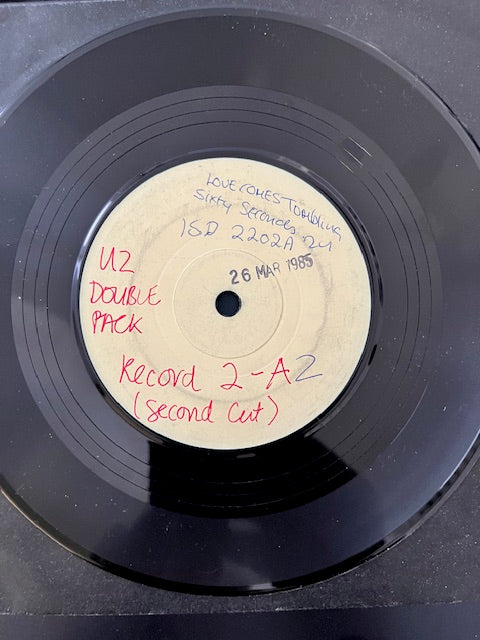 LOVE COMES TUMBLING
Sixty Seconds
ISD 2202A
26 MAR 1985
U2
DOUBLE
PACK
Record 2-A2
(Second Cut)